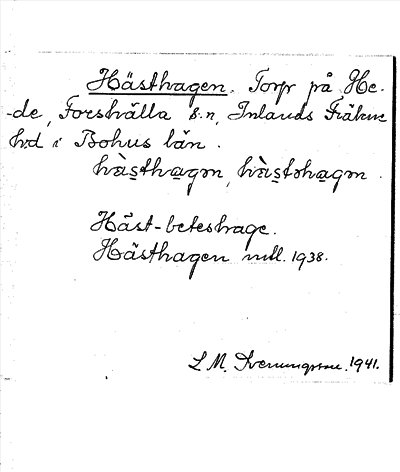 Hästhagen. Torp på He-
-de, Forshälla s:n, Inlands Fräkne
h:d i Bohus län.
hà̈sthagən, hà̈stshagən.
Häst-beteshage.
Hästhagen mtl. 1938.
L M. Svenungsson. 1941.